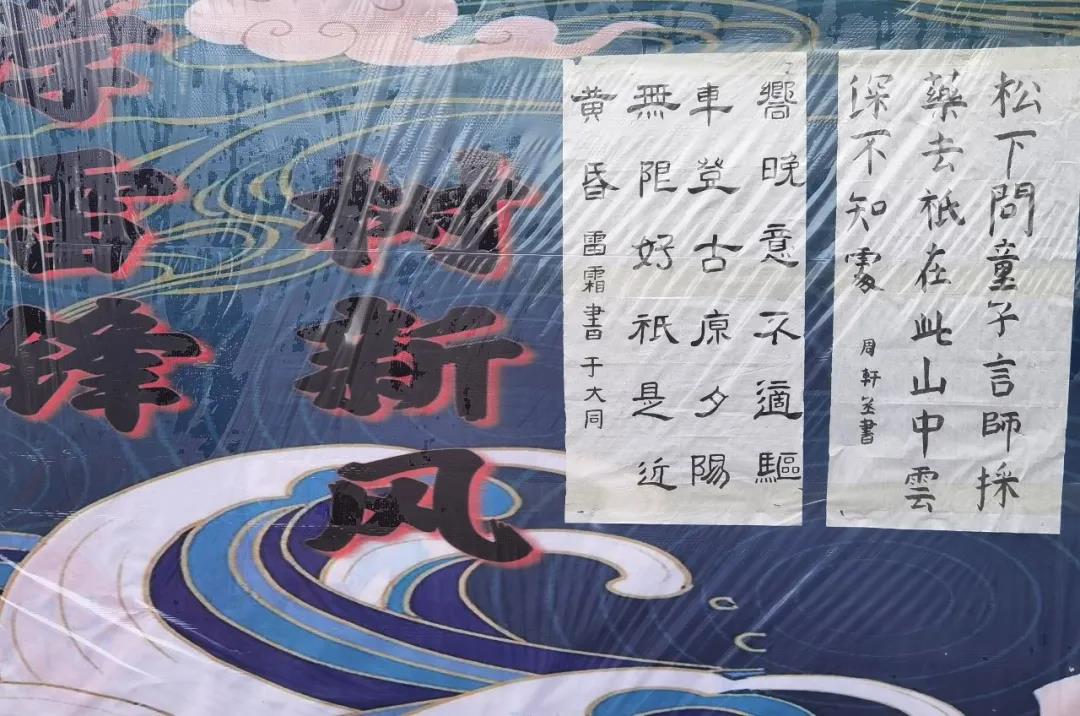 学雷锋
树新风
嚮晚意不適驅
車登古原夕陽
無限好祇是近
黄昏
雷霜書于大同
松下問童子言師採
藥去祇在此山中雲
深不知處
周軒書